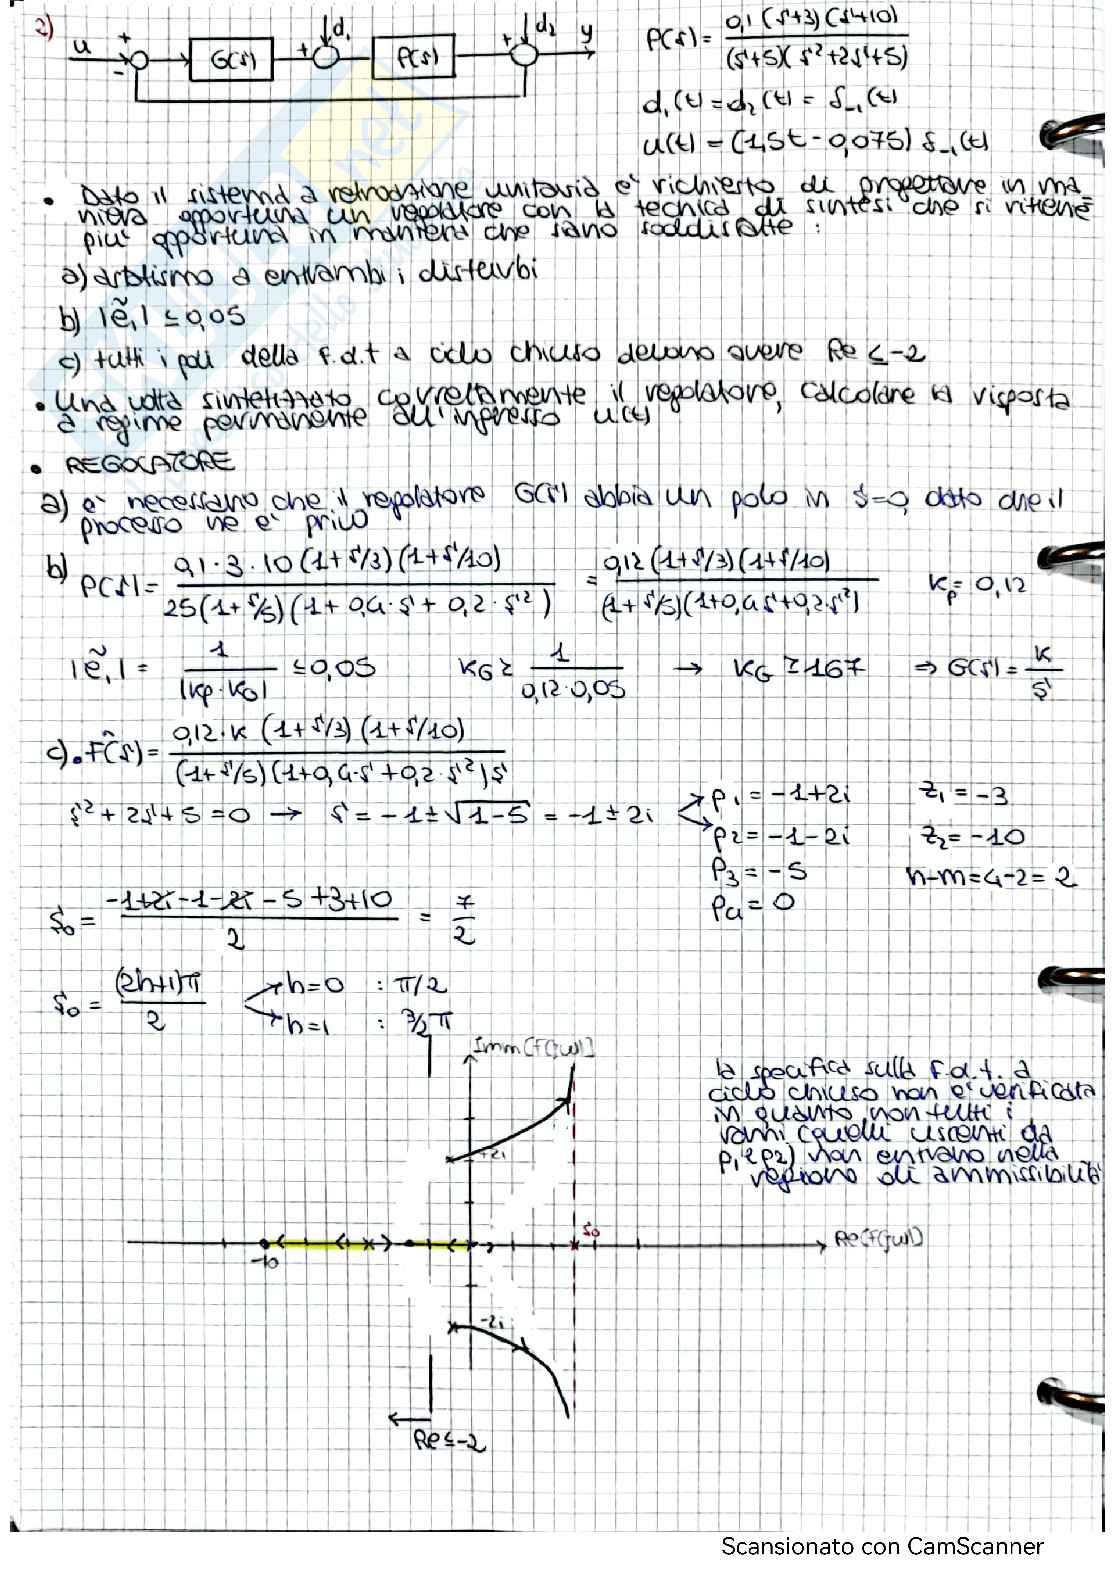 2) u + - G(s) + d₁ P(s) + d₂ y
P(s) = 0,1 (s+3)(s+10) / (s+5)(s²+2s+5)
d₁(t) = d₂(t) = δ₋₁(t)
u(t) = (1,5t - 0,075) δ₋₁(t)
• Dato il sistema a retroazione unitaria è richiesto di progettare in ma
niera opportuna un regolatore con la tecnica di sintesi che si ritiene
più opportuna in maniera che siano soddisfatte :
a) astatismo a entrambi i disturbi
b) |ẽ₁| ≤ 0,05
c) tutti i poli della f.d.t a ciclo chiuso devono avere Re ≤ -2
• Una volta sintetizzato correttamente il regolatore, calcolare la risposta
a regime permanente all'ingresso u(t)
• REGOLATORE
a) è necessario che il regolatore G(s) abbia un polo in s=0, dato che il
processo ne è privo
b) P(s) = 0,1·3·10 (1+s/3)(1+s/10) / 25(1+s/5)(1+0,4·s+0,2·s²) = 0,12 (1+s/3)(1+s/10) / (1+s/5)(1+0,4s+0,2s²) Kp = 0,12
|ẽ₁| = 1 / |Kp·KG| ≤ 0,05 KG ≥ 1 / 0,12·0,05 → KG ≥ 167 ⇒ G(s) = K / s
c) • F̂(s) = 0,12·K (1+s/3)(1+s/10) / (1+s/5)(1+0,4·s+0,2·s²)s
s²+2s+5=0 → s = -1±√1-5 = -1±2i
p₁ = -1+2i z₁ = -3
p₂ = -1-2i z₂ = -10
p₃ = -5 n-m=4-2=2
p₄ = 0
s₀ = -1+2i-1-2i-5+3+10 / 2 = 7/2
s₀ = (2h+1)π / 2
h=0 : π/2
h=1 : 3/2 π
Imm[F(jω)]
la specifica sulla f.d.t. a
ciclo chiuso non è verificata
in quanto non tutti i
rami (quelli uscenti da
p₁ e p₂) non entrano nella
regione di ammissibilità
+2i
s₀
Re[F(jω)]
-10
-2i
Re≤-2
Scansionato con CamScanner